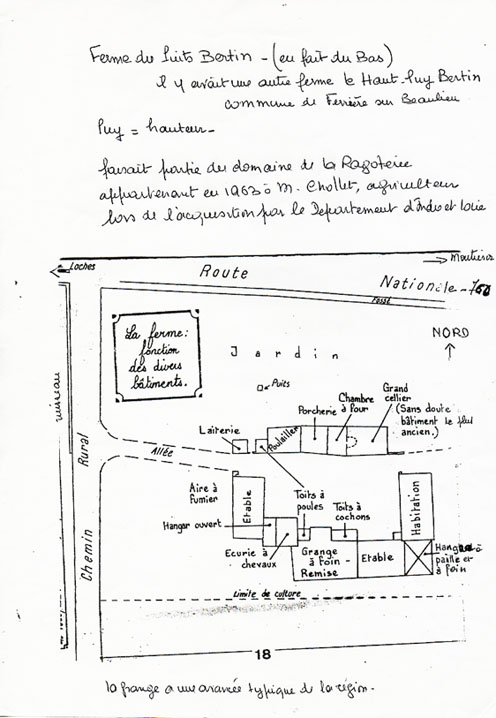 Ferme du Puits Bertin - (en fait du Bas)
il y avait une autre ferme le Haut-Puy Bertin
commune de Ferrière sur Beaulieu
Puy = hauteur -
faisait partie du domaine de la Ragoterie
appartenant en 1963 à M. Chollet, agriculteur
lors de l'acquisition par le Departement d'Indre et Loire
Loches
Route
Nationale - 760
Montrésor
Fossé
La ferme:
fonction
des divers
bâtiments.
NORD
Jardin
Puits
ruisseau
Chemin Rural
Allée
Laiterie
Poulailler
Porcherie
Chambre
à four
Grand
cellier
(Sans doute
bâtiment le plus
ancien.)
Aire à
fumier
Etable
Hangar ouvert
Ecurie à
chevaux
Toits à
poules
Toits à
cochons
Grange
à foin -
Remise
Etable
Habitation
Hangar à
paille et
à foin
Limite de culture
18
la grange a une avancée typique de la région -